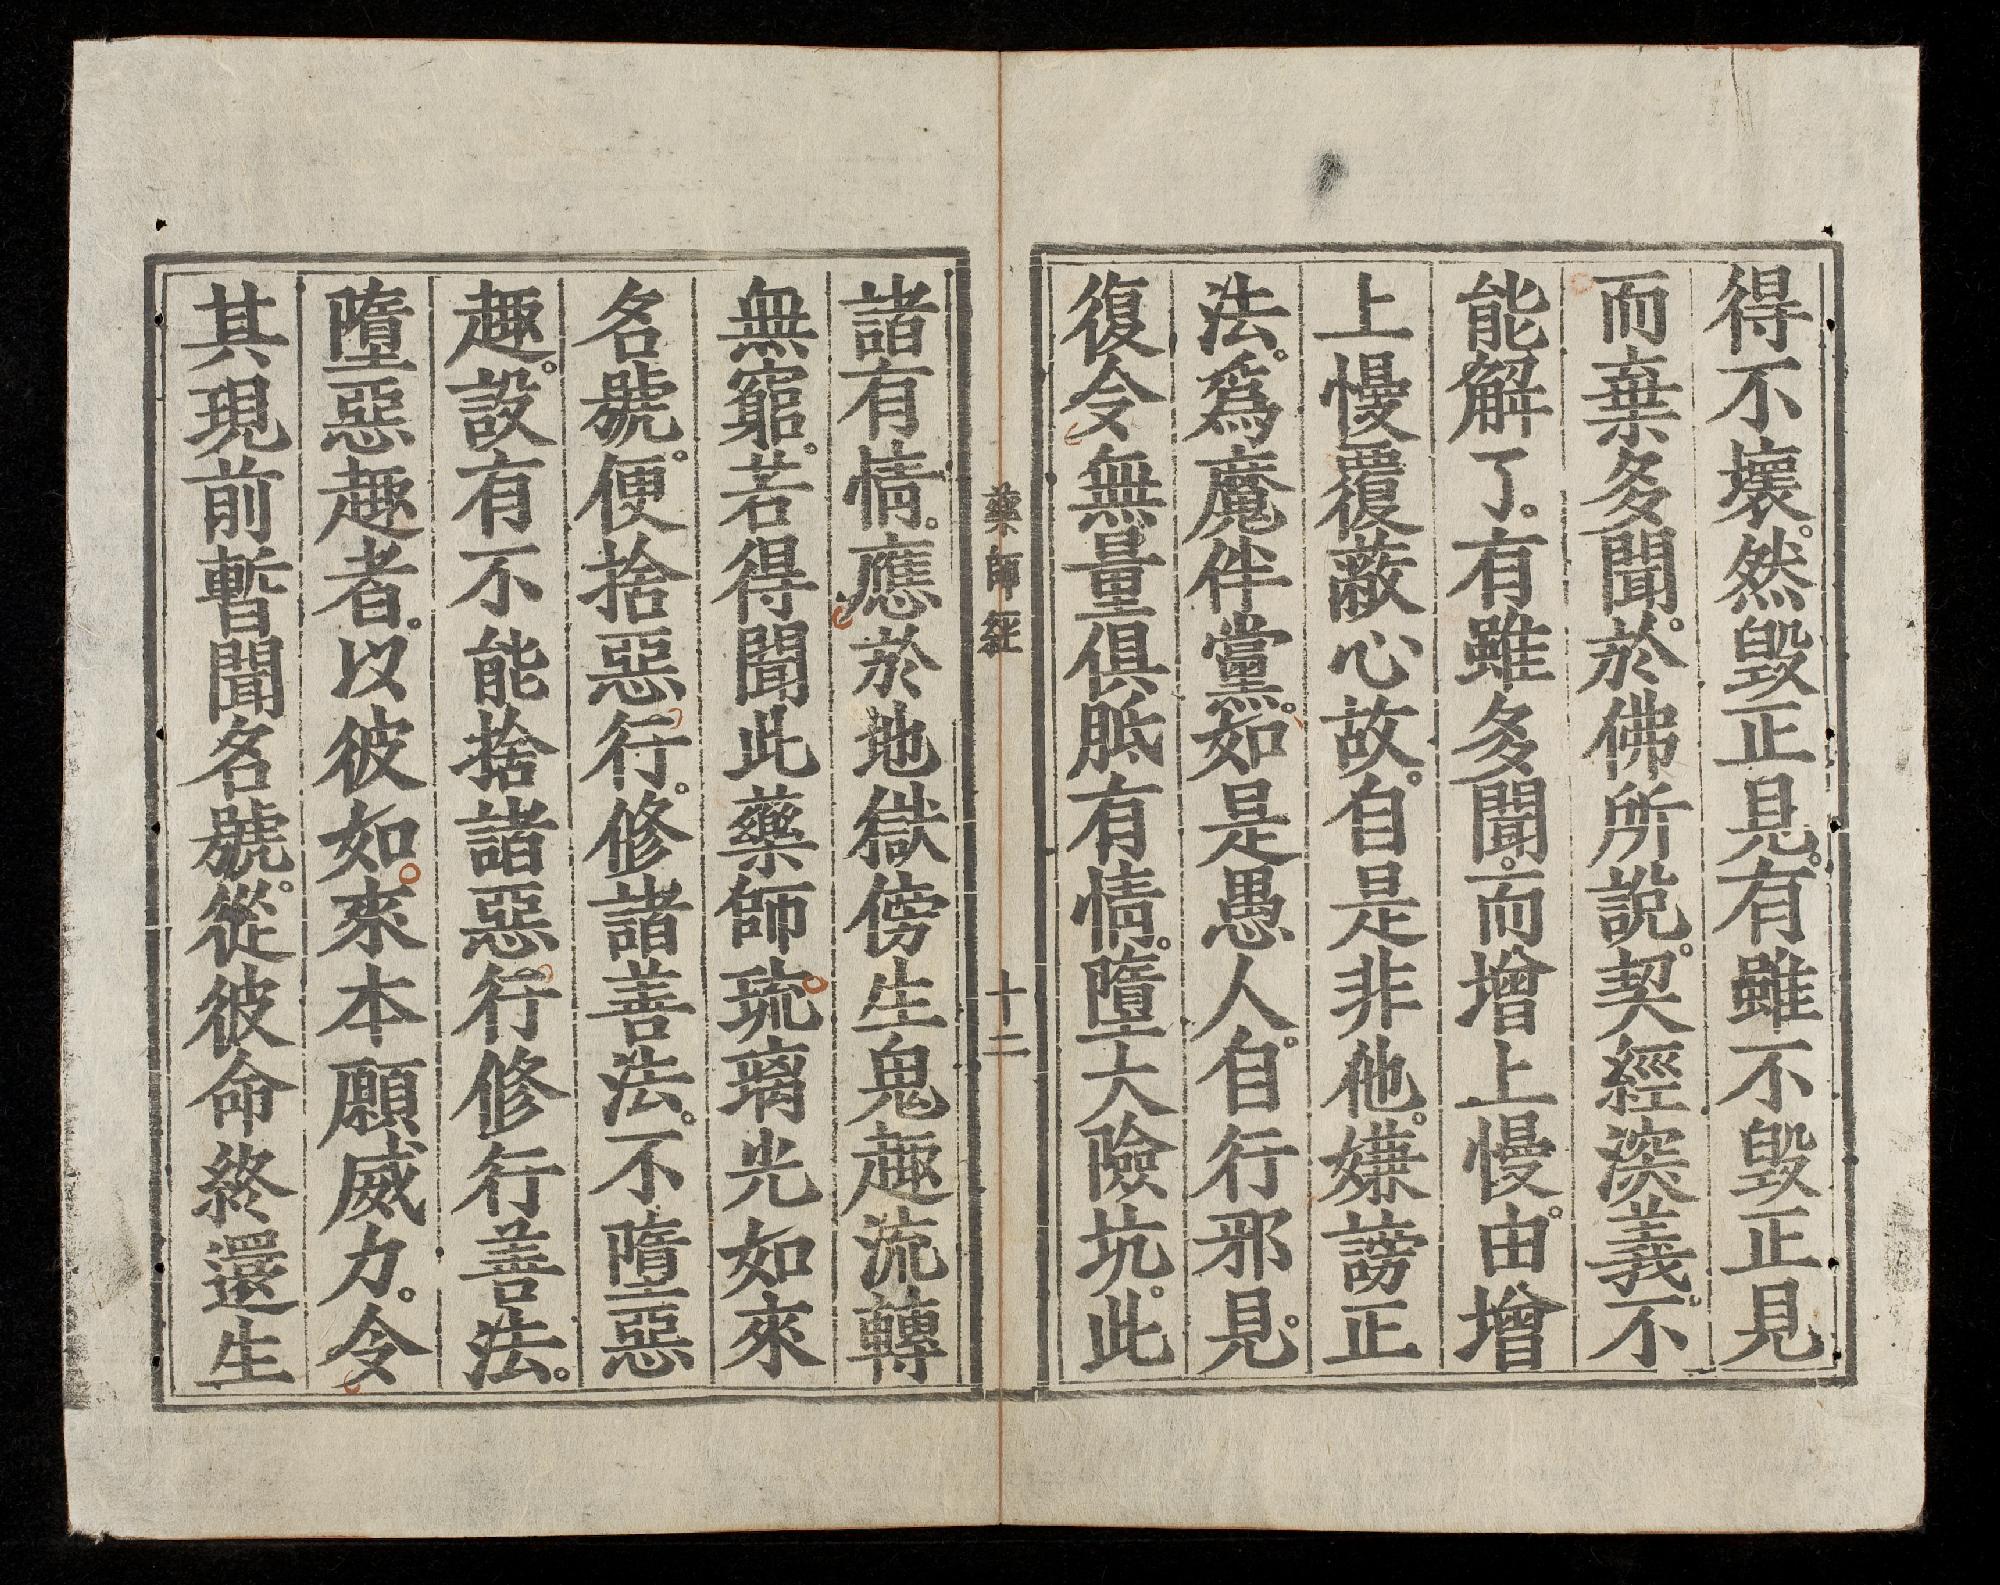 得不壞。然毀正見。有雖不毀正見
而棄多聞。於佛所說。契經深義。不
能解了。有雖多聞。而增上慢。由增
上慢覆蔽心故。自是非他。嫌謗正
法。爲魔伴黨。如是愚人。自行邪見。
復令無量俱胝有情。墮大險坑。此
藥師經
十二
諸有情。應於地獄傍生鬼趣流轉
無窮。若得聞此藥師琉璃光如來
名號。便捨惡行。修諸善法。不墮惡
趣。設有不能捨諸惡行修行善法。
墮惡趣者。以彼如來本願威力。令
其現前暫聞名號。從彼命終還生